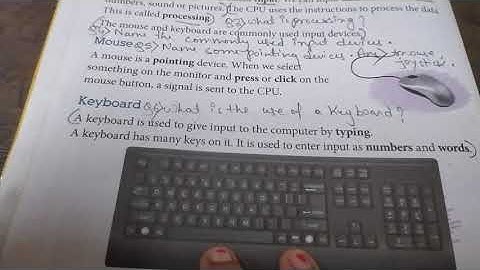 numbers, sound or pictures. The CPU uses the instructions to process the data.
This is called processing. Q3) What is processing?
The mouse and keyboard are commonly used input devices.
Q4) Name the commonly used input devices.
Mouse Q5) Name some pointing devices. Ans) mouse,
joystick.
A mouse is a pointing device. When we select
something on the monitor and press or click on the
mouse button, a signal is sent to the CPU.
Keyboard Q6) What is the use of a Keyboard?
A keyboard is used to give input to the computer by typing.
A keyboard has many keys on it. It is used to enter input as numbers and words.